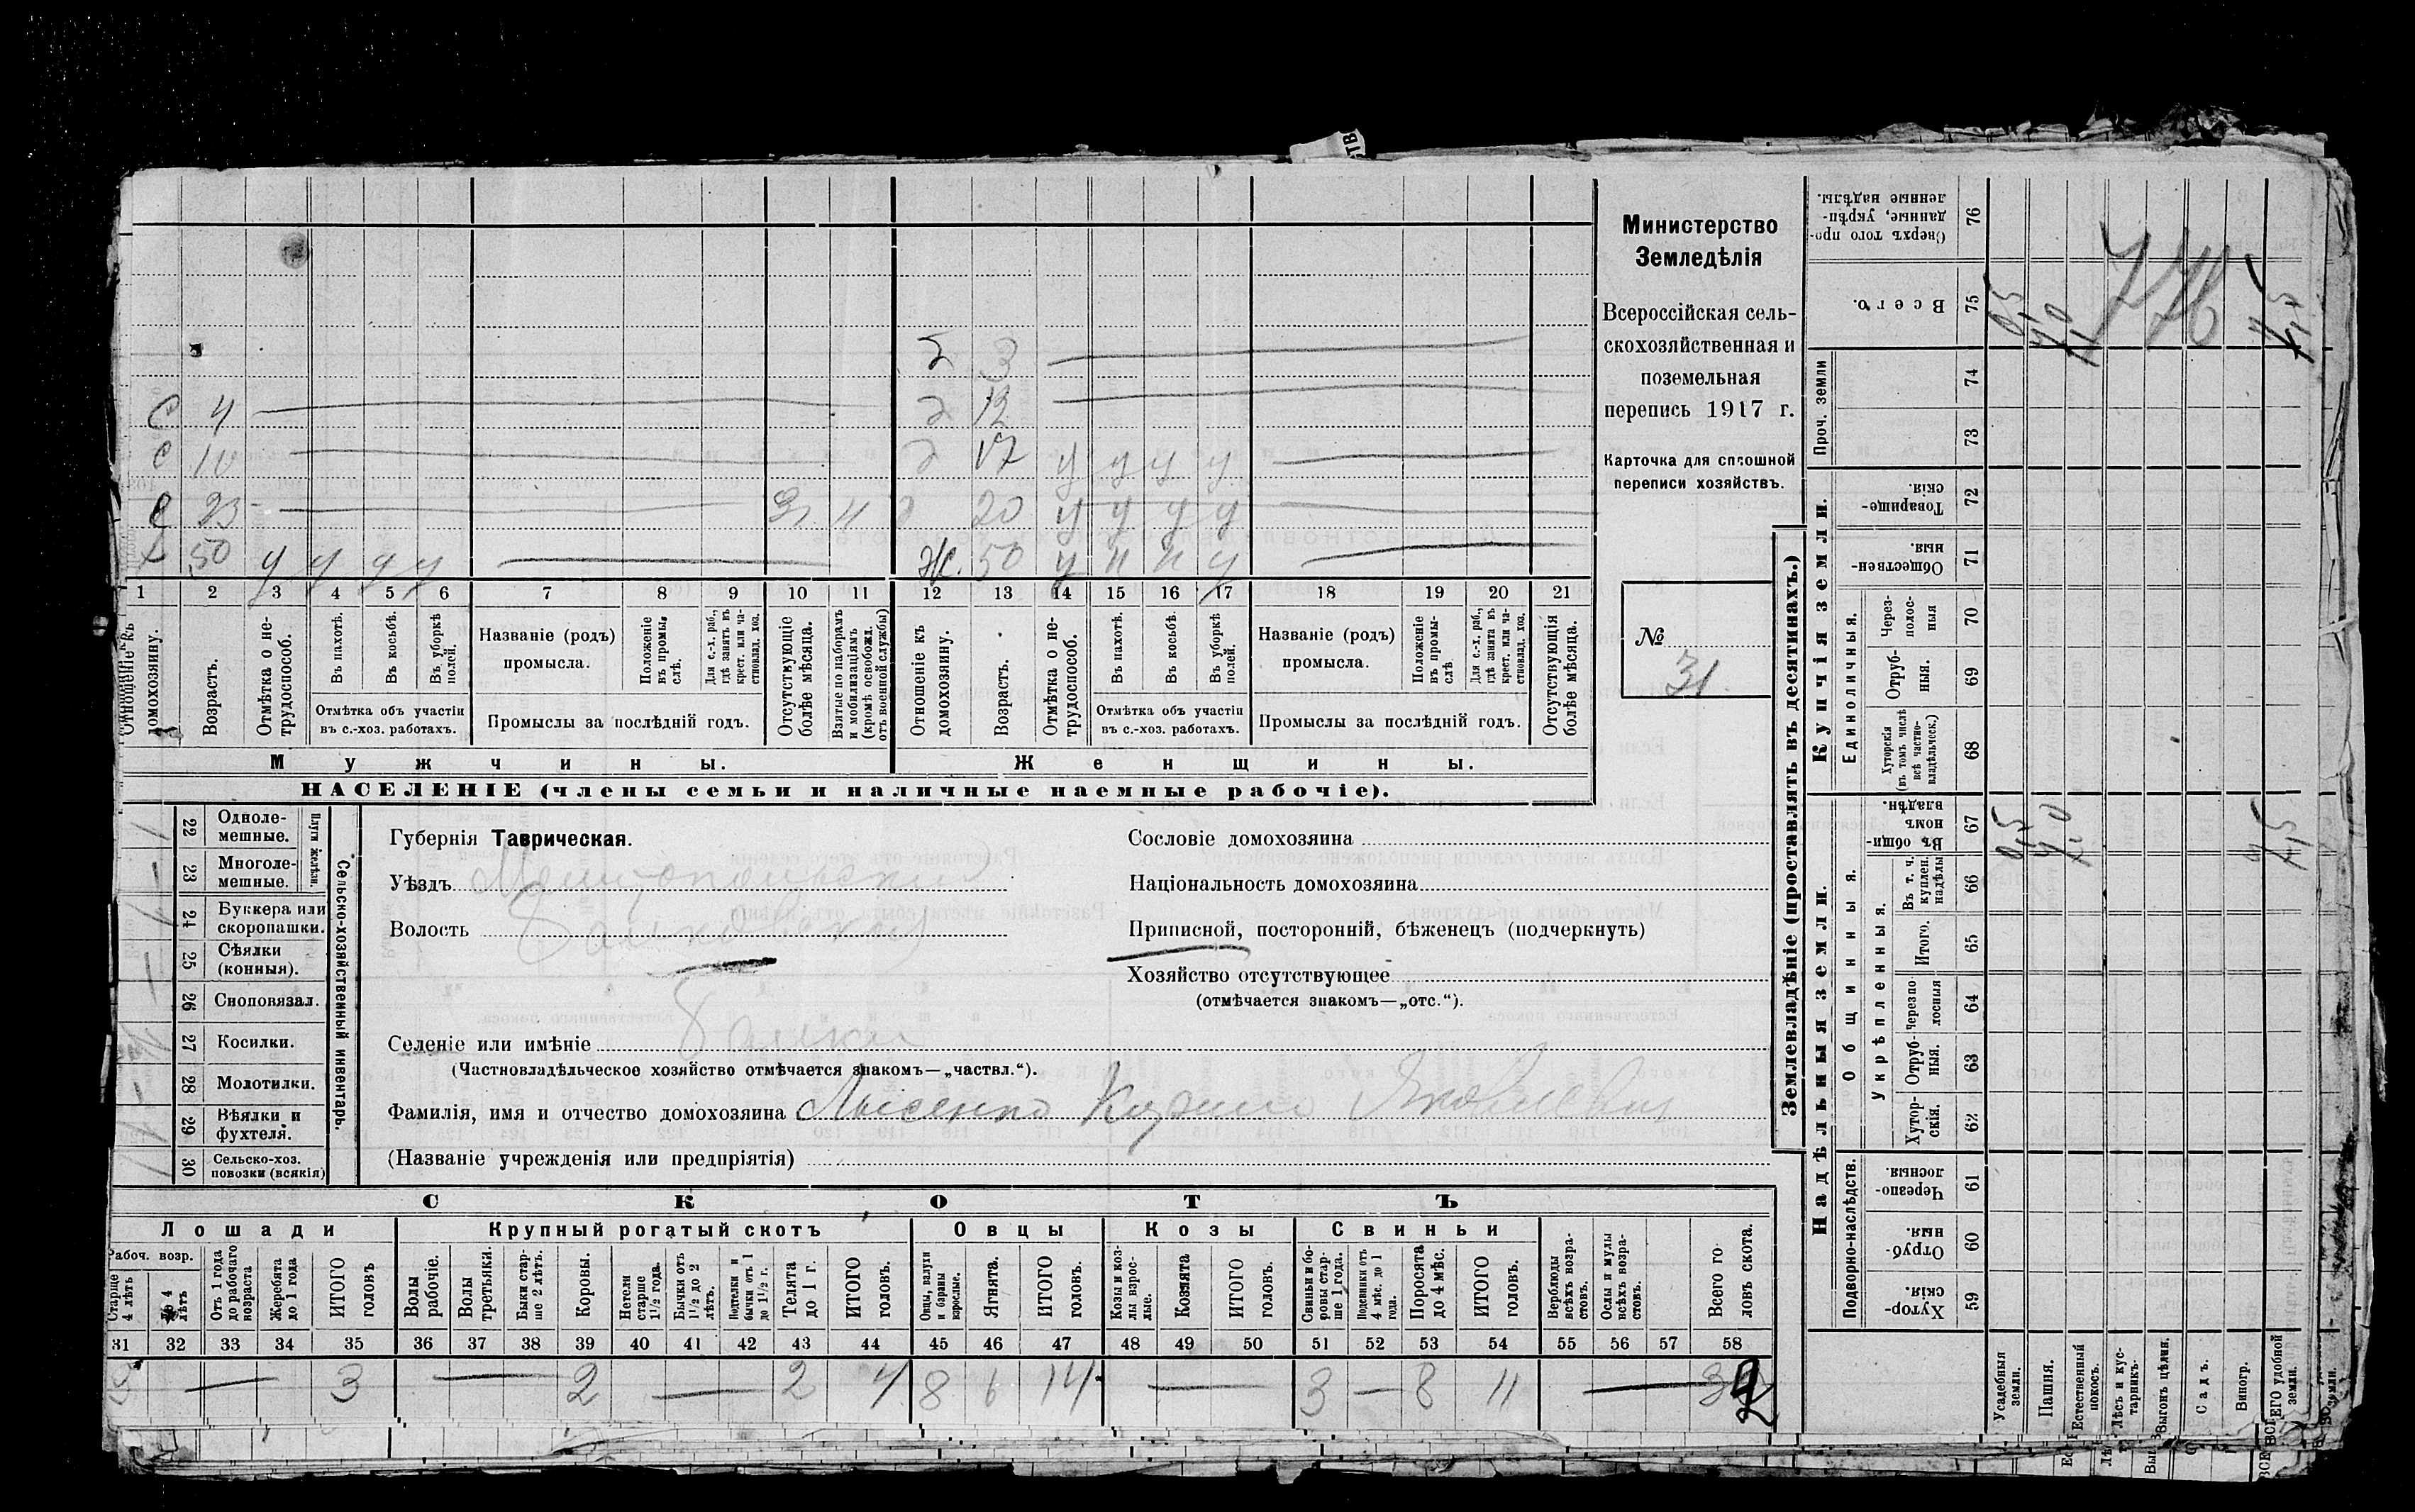 Министерство
Земледѣлія
Всероссійская сель-
скохозяйственная и
поземельная
перепись 1917 г.
Карточка для сплошной
переписи хозяйствъ.
№
31
2 3
с 4 12
с 10 17 у у у у
с 23 20 у у у у
50 у у у у Ж. 50 у н н у
1 2 3 4 5 6 7 8 9 10 11 12 13 14 15 16 17 18 19 20 21
Отношеніе къ домохозяину.
Возрастъ.
Отмѣтка о не-трудоспособ.
Въ пахотѣ.
Въ косьбѣ.
Въ уборкѣ полей.
Отмѣтка объ участіи
въ с.-хоз. работахъ.
Названіе (родъ)
промысла.
Положеніе въ промы-слѣ.
Для с.-х. раб., гдѣ занятъ въ крест. или ча-стновлад. хоз.
Промыслы за послѣдній годъ.
Отсутствующіе болѣе мѣсяца.
Взятые по наборамъ и мобилизаціямъ (кромѣ освобожд. отъ военной службы)
Отношеніе къ домохозяину.
Возрастъ.
Отмѣтка о не-трудоспособ.
Въ пахотѣ.
Въ косьбѣ.
Въ уборкѣ полей.
Отмѣтка объ участіи
въ с.-хоз. работахъ.
Названіе (родъ)
промысла.
Положеніе въ промы-слѣ.
Для с.-х. раб., гдѣ занята въ крест. или ча-стновлад. хоз.
Промыслы за послѣдній годъ.
Отсутствующія болѣе мѣсяца.
Мужчины. Женщины.
НАСЕЛЕНІЕ (члены семьи и наличные наемные рабочіе).
Сельско-хозяйственный инвентарь.
Плуги желѣзн.
22 Одноле-мешные.
23 Многоле-мешные.
24 Буккера или скоропашки.
25 Сѣялки (конныя).
26 Сноповязал.
27 Косилки.
28 Молотилки.
29 Вѣялки и фухтеля.
30 Сельско-хоз. повозки (всякія)
Губернія Таврическая.
Уѣздъ Мелитопольский
Волость Балковская
Селеніе или имѣніе Балки
(Частновладѣльческое хозяйство отмѣчается знакомъ—„частвл.“).
Фамилія, имя и отчество домохозяина Лысенко Кирилл Яковлевич
(Названіе учрежденія или предпріятія)
Сословіе домохозяина
Національность домохозяина
Приписной, посторонній, бѣженецъ (подчеркнуть)
Хозяйство отсутствующее
(отмѣчается знакомъ—„отс.“).
СКОТЪ
Лошади Крупный рогатый скотъ Овцы Козы Свиньи
Рабоч. возр.
Старше 4 лѣтъ
До 4 лѣтъ
Отъ 1 года до рабочаго возраста
Жеребята до 1 года
ИТОГО головъ
Волы рабочіе.
Волы третьяки.
Быки стар-ше 2 лѣтъ.
Коровы.
Нетели старше 1½ года.
Бычки отъ 1½ до 2 лѣтъ.
Подтелки и бычки отъ 1 до 1½ г.
Телята до 1 г.
ИТОГО головъ.
Овцы, валухи и бараны взрослые.
Ягнята.
ИТОГО головъ.
Козы и коз-лы взрос-лые.
Козлята
ИТОГО головъ.
Свиньи и бо-ровы стар-ше 1 года.
Подсвинки отъ 4 мѣс. до 1 года.
Поросята до 4 мѣс.
ИТОГО головъ.
Верблюды всѣхъ возра-стовъ.
Ослы и мулы всѣхъ возра-стовъ.
Всего го-ловъ скота.
31 32 33 34 35 36 37 38 39 40 41 42 43 44 45 46 47 48 49 50 51 52 53 54 55 56 57 58
3 — 3 — 2 — 2 4 8 6 14 — 3 — 8 11 — 32
Землевладѣніе (проставлять въ десятинахъ.)
Купчія земли.
Надѣльныя земли.
Сверхъ того про-данные, укрѣп-ленные надѣлы. 76
Всего. 75
Проч. земли 74
73
Товарище-скія. 72
Обществен-ныя. 71
Единоличныя.
Через-полос-ныя 70
Отруб-ныя. 69
Хуторскія (въ томъ числѣ всѣ частно-владѣльческ.) 68
Общинныя.
Въ общин-номъ владѣн. 67
Укрѣпленныя.
Въ т. ч. куплен. надѣлы 66
Итого. 65
Черезпо-лосныя 64
Отруб-ныя. 63
Хутор-скія. 62
Подворно-наслѣдств.
Черезпо-лосныя 61
Отруб-ныя. 60
Хутор-скія. 59
Усадебныя земли.
Пашня.
Естественный покосъ.
Лѣсъ и кус-тарникъ.
Выгонъ цѣлин.
Садъ.
Виногр.
ВСЕГО удобной земли.